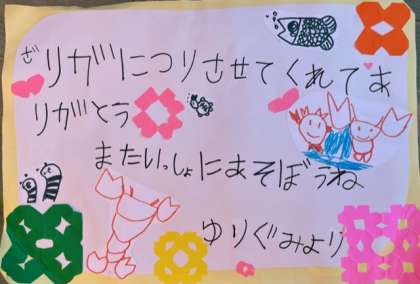 ざりがにつりさせてくれてあ
りがとう
またいっしょにあそぼうね
ゆりぐみより